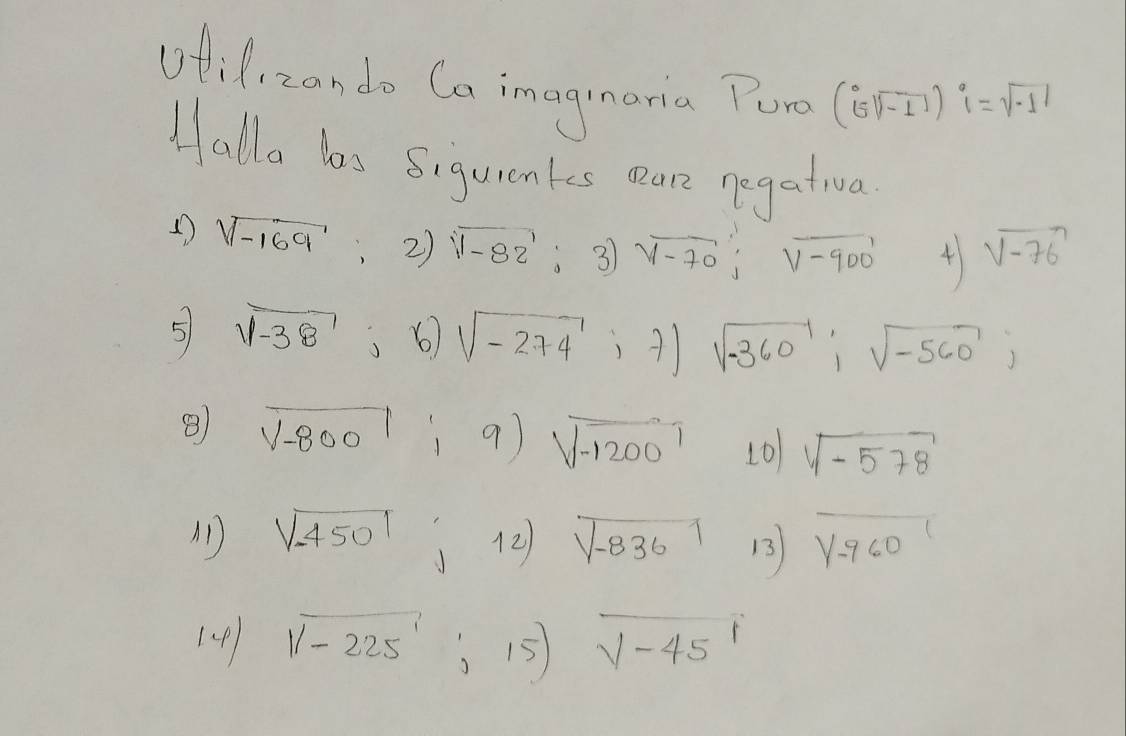 Utilizando la imaginaria Pura (i=√-1) i=√-1
Halla las Siguientes raiz negativa.
1) √-169 ; 2) √-82 ; 3) √-70 ; √-900 4) √-76
5) √-38 ; 6) √-274 ; 7) √-360 ; √-560 ;
8) √-800 ; 9) √-1200 10) √-578
11) √-450 ; 12) √-836 13) √-960
14) √-225 ; 15) √-45